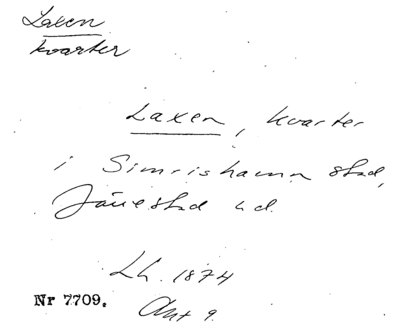 Laxen
kvarter
Laxen, kvarter
i Simrishamn stad,
Järrestad hd.
Lh. 1874
Nr 7709.
Akt 9.